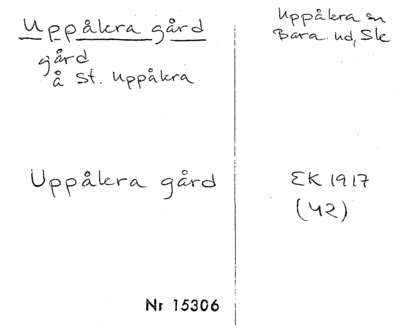 Uppåkra gård
gård
å St. Uppåkra
Uppåkra sn
Bara hd, Sk
Uppåkra gård
EK 1917
(42)
Nr 15306